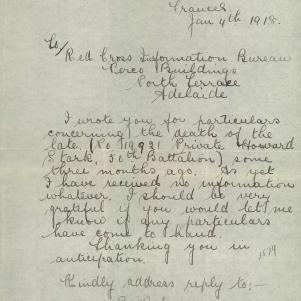 Frances
Jan 4th 1918.
To/
Red Cross Information Bureau
Buildings
North Terrace
Adelaide
I wrote you for particulars
concerning the death of the
late, (No Private Howard
Stark, 50th Battalion) some
three months ago. As yet
I have received no information
whatever. I should be very
grateful if you would let me
know if any particulars
have come to hand.
Thanking you in
anticipation.
Kindly address reply to:-